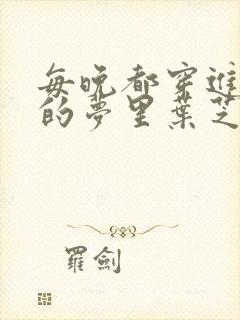 每晚都穿進
的夢里葉芝
羅劍